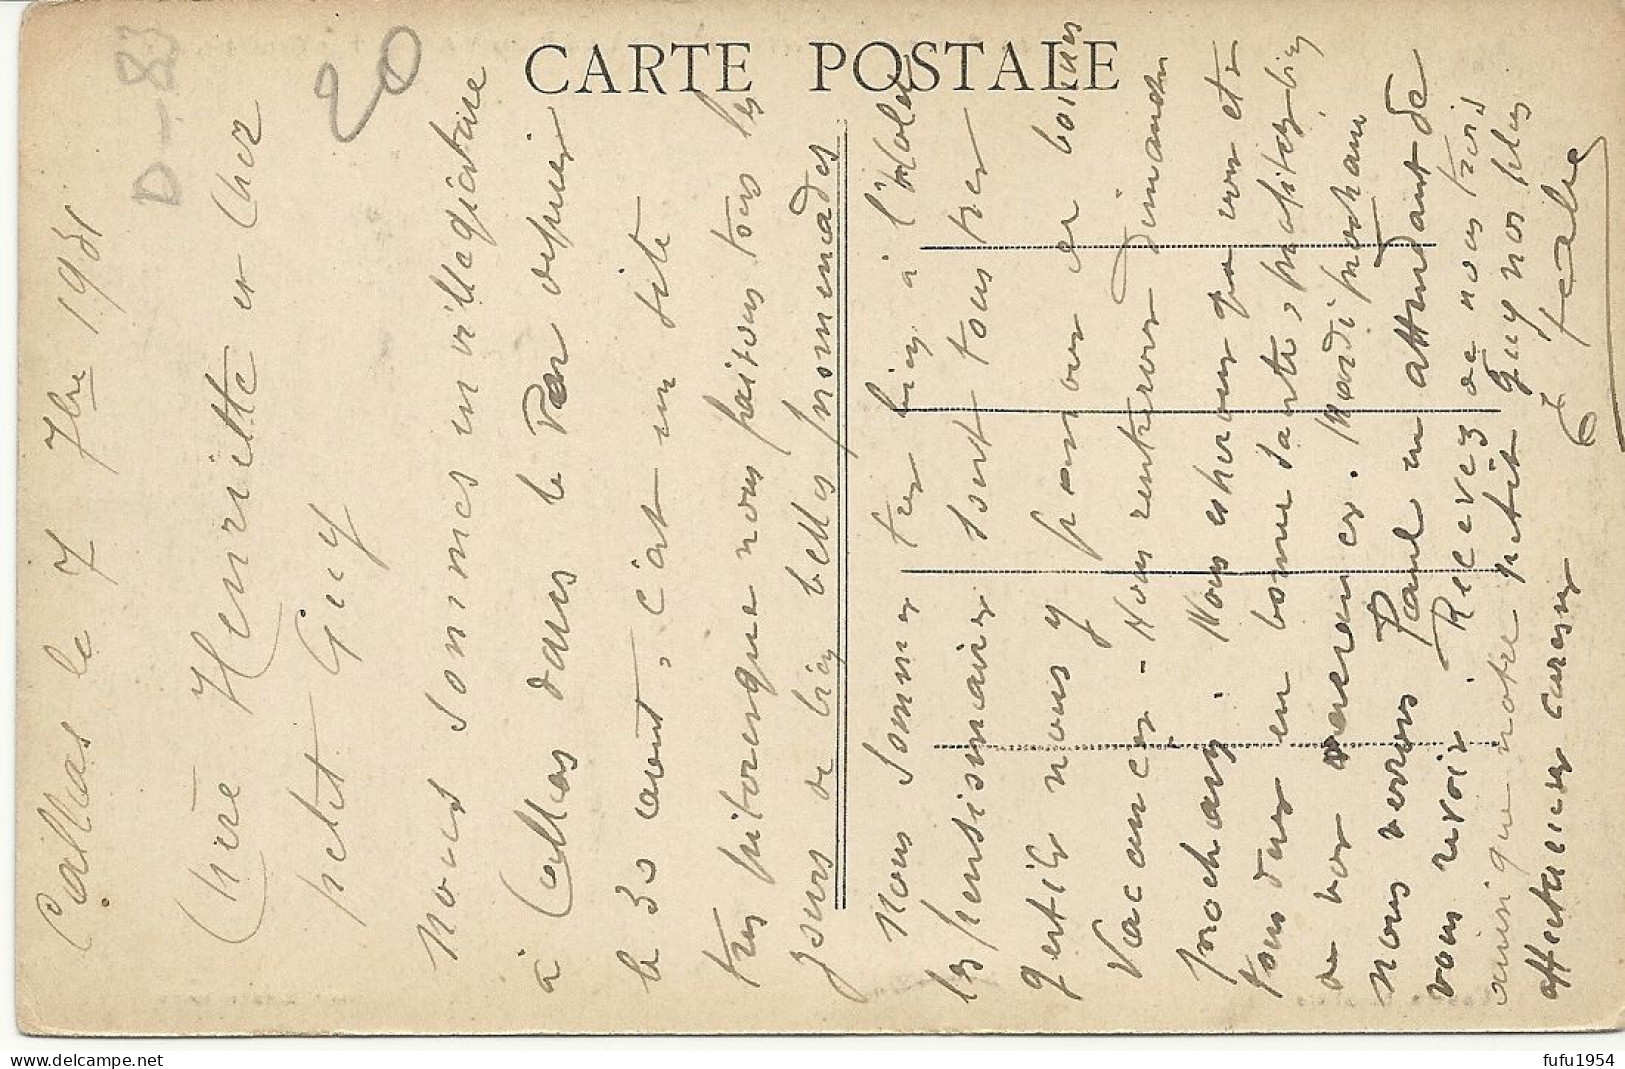 CARTE POSTALE
D-83
20
Callas le 7 7bre 1931
Chère Henriette et Cher
petit Guy
Nous sommes en villegiature
à Callas dans le Var depuis
le 30 aout, c'est un site
très pitoresque nous faisons tous les
jours de bien belles promenades
Nous sommes tres bien à l'hotel
les pensionnaires sont tous tres
gentils nous y passons de bonnes
Vacances - Nous rentrerons Dimanche
prochain. Nous esherons que vous etes
tous deux en bonne santé, profitez bien
de vos vacances. Mardi prochain
nous verrons Paul en attendant de
vous revoir. Recevez de nous trois
ainsi que notre petit Guy nos plus
affectueuses caresses
fufu1954